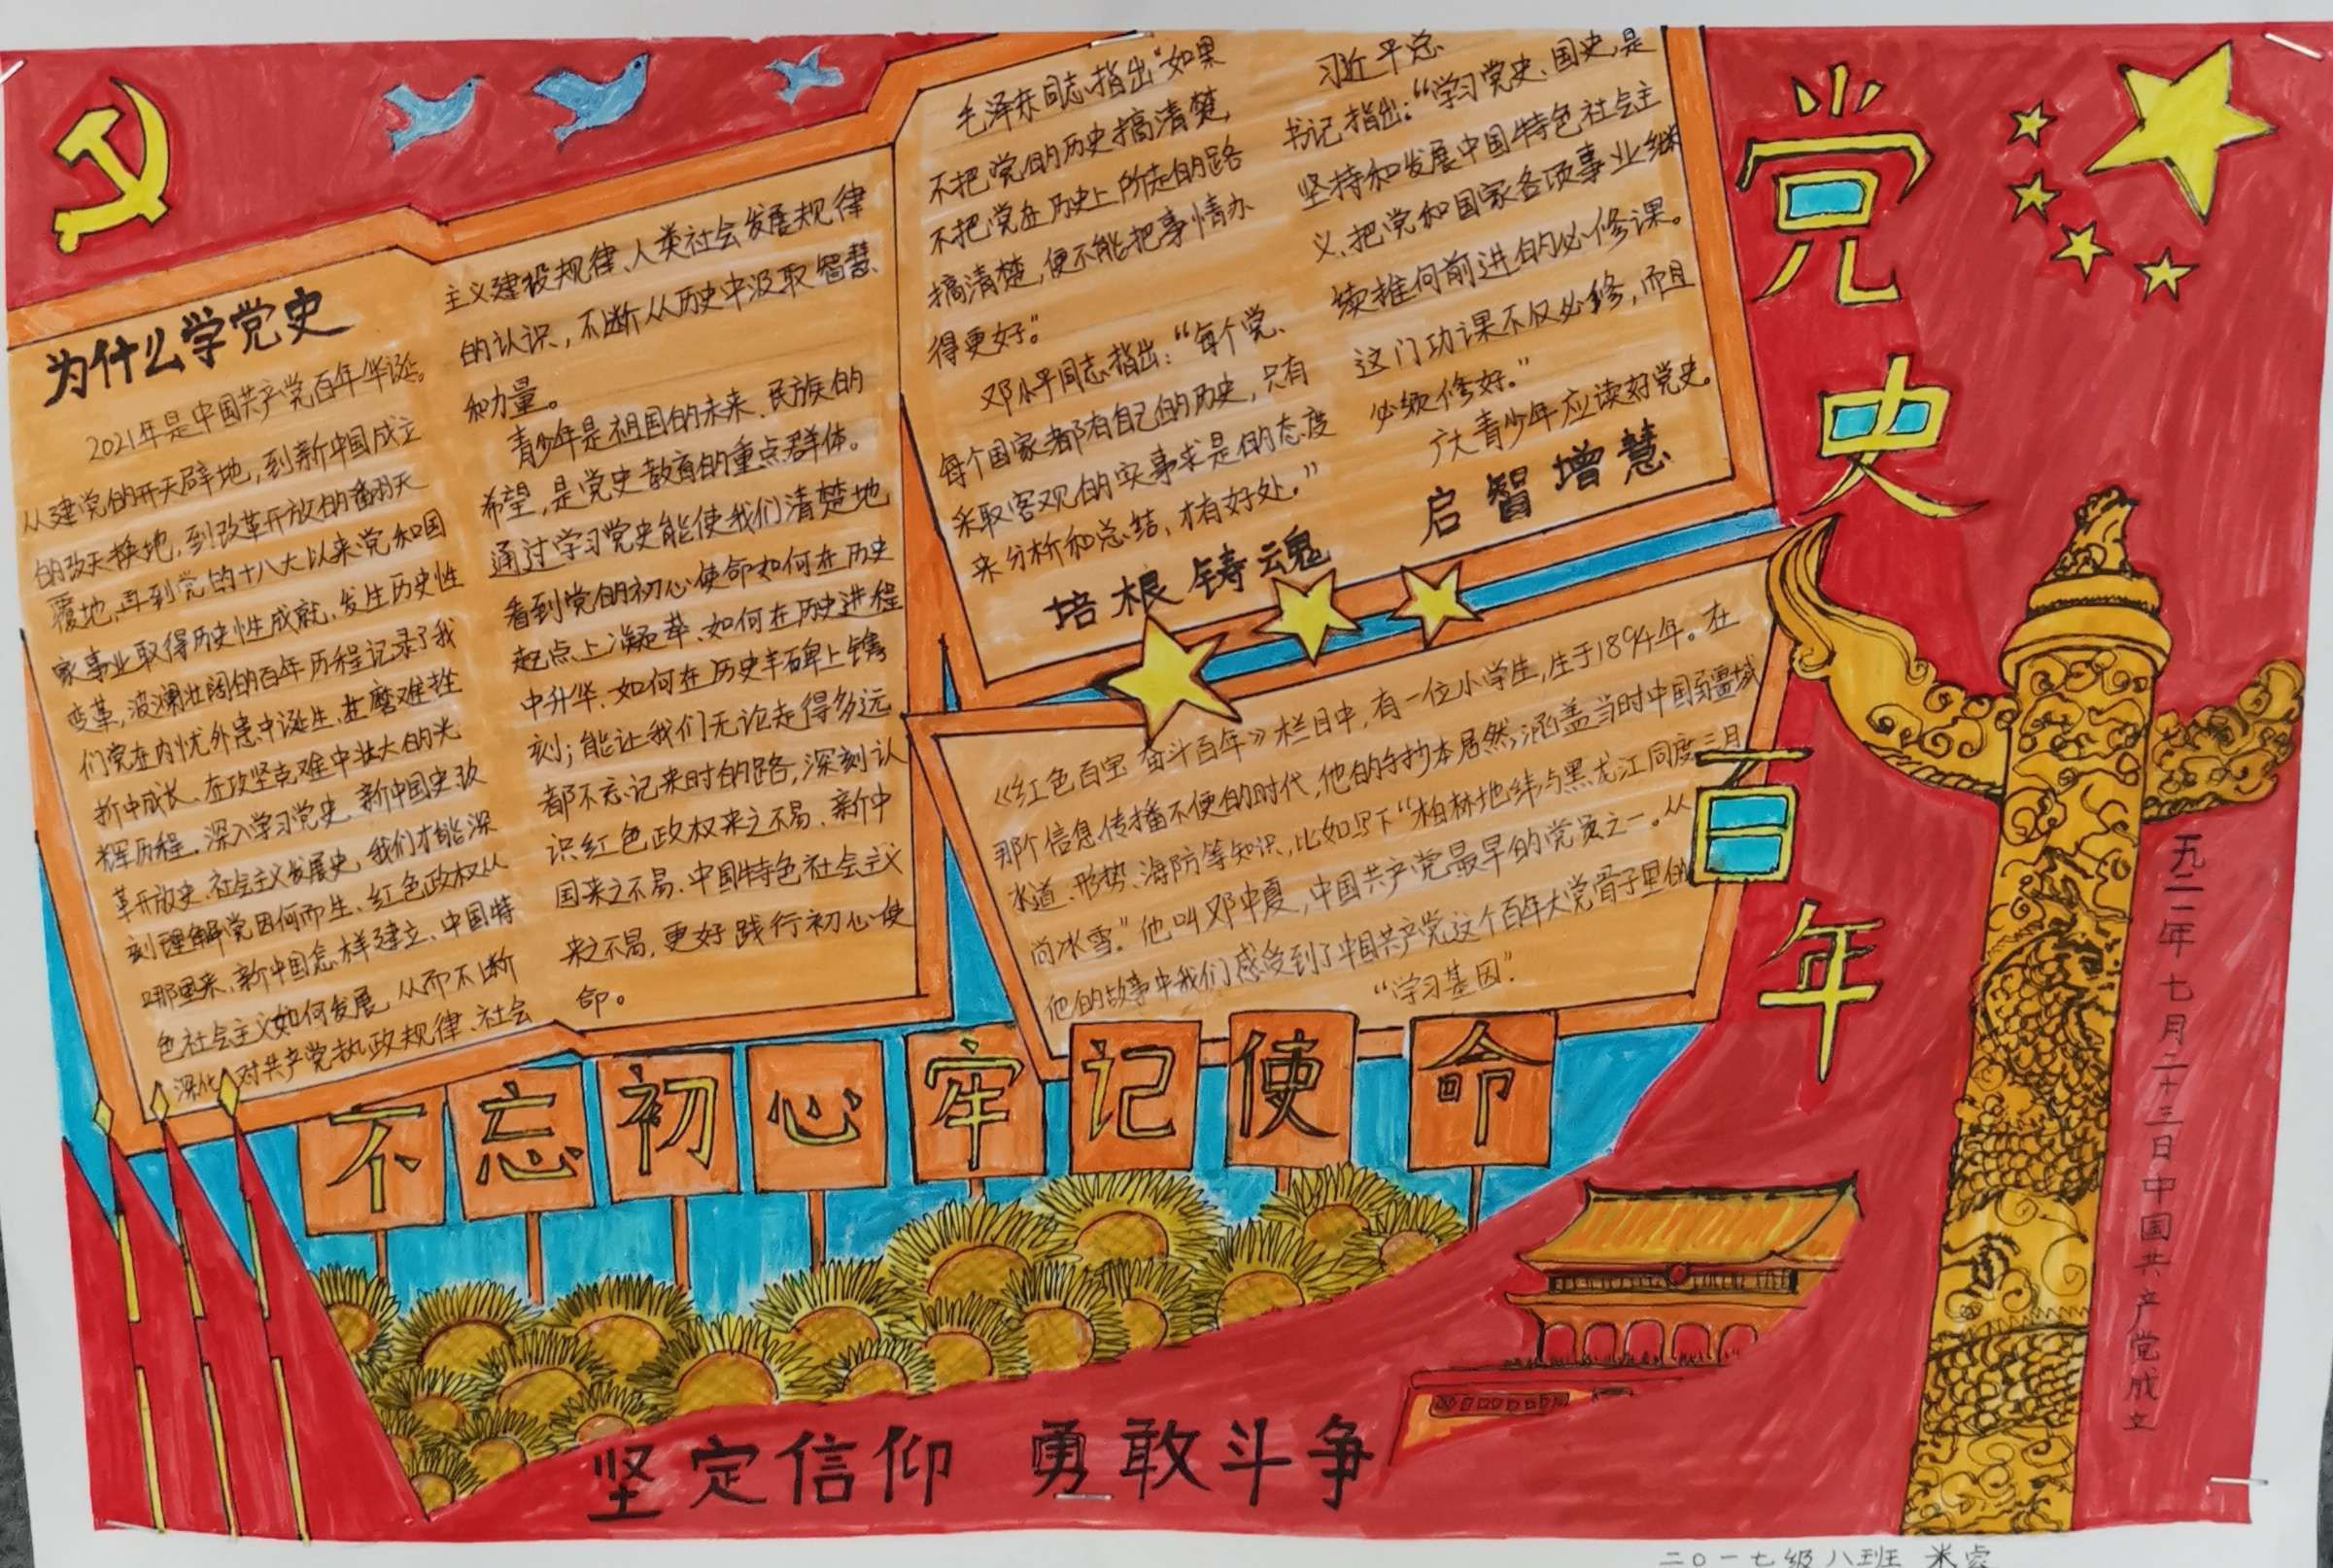 党史百年
为什么学党史
2021年是中国共产党百年华诞。
从建党的开天辟地，到新中国成立
的改天换地，到改革开放的翻天
覆地，再到党的十八大以来党和国
家事业取得历史性成就、发生历史性
变革，波澜壮阔的百年历程记录了我
们党在内忧外患中诞生、在磨难挫
折中成长、在攻坚克难中壮大的光
辉历程。深入学习党史、新中国史、改
革开放史、社会主义发展史，我们才能深
刻理解党因何而生、红色政权从
哪里来、新中国怎样建立、中国特
色社会主义如何发展，从而不断
深化对共产党执政规律、社会
主义建设规律、人类社会发展规律
的认识，不断从历史中汲取智慧
和力量。
青少年是祖国的未来、民族的
希望，是党史教育的重点群体。
通过学习党史能使我们清楚地
看到党的初心使命如何在历史
起点上凝萃、如何在历史进程
中升华、如何在历史丰碑上镌
刻；能让我们无论走得多远
都不忘记来时的路，深刻认
识红色政权来之不易、新中
国来之不易、中国特色社会主义
来之不易，更好践行初心使
命。
毛泽东同志指出“如果
不把党的历史搞清楚，
不把党在历史上所走的路
搞清楚，便不能把事情办
得更好。”
邓小平同志指出：“每个党、
每个国家都有自己的历史，只有
采取客观的实事求是的态度
来分析和总结，才有好处。”
培根铸魂
习近平总
书记指出：“学习党史、国史，是
坚持和发展中国特色社会主
义、把党和国家各项事业继
续推向前进的必修课。
这门功课不仅必修，而且
必须修好。”
广大青少年应读好党史。
启智增慧
《红色百宝 奋斗百年》栏目中，有一位小学生，生于1894年。在
那个信息传播不便的时代，他的手抄本居然涵盖当时中国疆域、
水道、形势、海防等知识，比如写下“柏林地纬与黑龙江同度三月
尚冰雪。”他叫邓中夏，中国共产党最早的党员之一。从
他的故事中我们感受到了中国共产党这个百年大党骨子里的
“学习基因”.
不忘初心牢记使命
坚定信仰 勇敢斗争
一九二一年七月二十三日中国共产党成立
二〇一七级八班 米